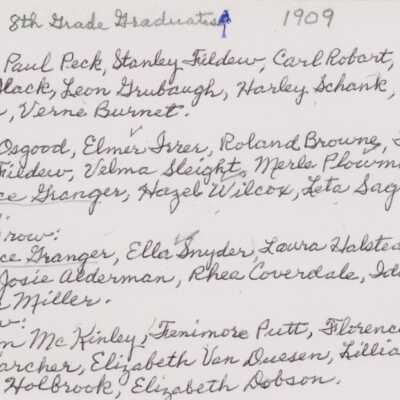 8th Grade Graduates 1909
Paul Peck, Stanley Fildew, Carl Robart,
Black, Leon Grubaugh, Harley Schank,
, Verne Burnet.
Osgood, Elmer Irrer, Roland Browne,
Fildew, Velma Sleight, Merle Plowm
ce Granger, Hazel Wilcox, Leta Sag
row:
ce Granger, Ella Snyder, Laura Halstea
Josie Alderman, Rhea Coverdale, Id
Miller.
w:
n McKinley, Fenimore Putt, Florenc
archer, Elizabeth Van Duesen, Lillia
Holbrook, Elizabeth Dobson.